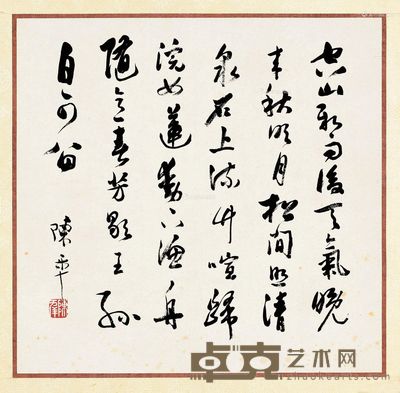 空山新雨後天氣晚
来秋明月松間照清
泉石上流竹喧歸
浣女蓮動下漁舟
隨意春芳歇王孫
自可留
陳平
卓克艺术网
zhuokearts.com